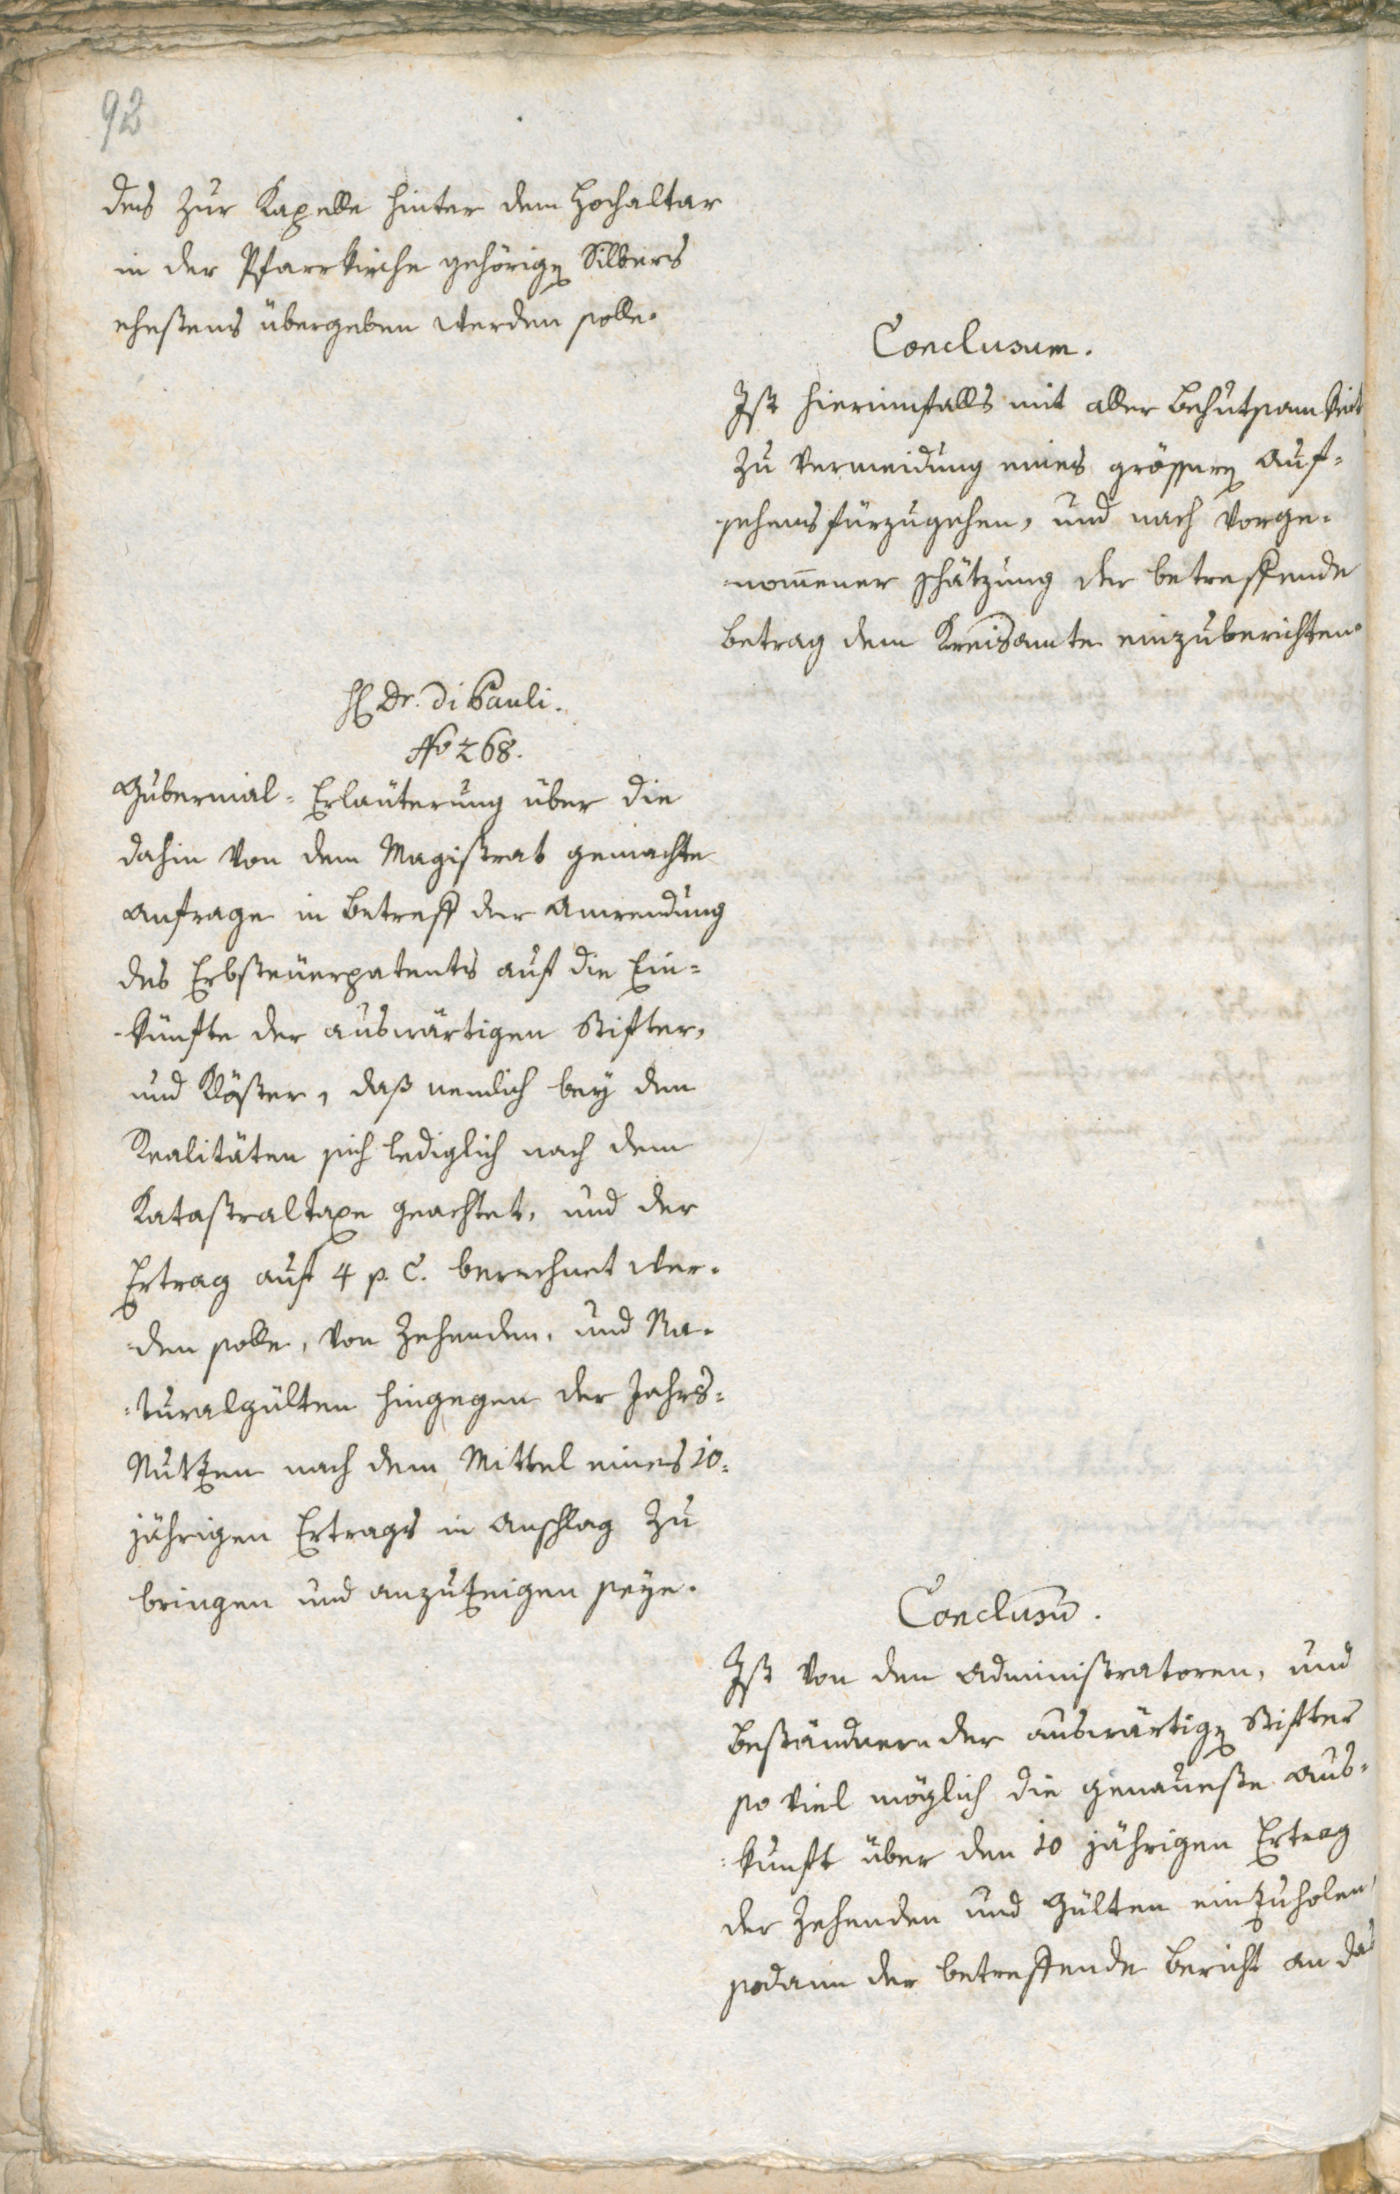 92
des zur Kapelle hinter dem Hochaltar
in der Pfarrkirche gehörigen Silbers
ehestens übergeben werden solle.
Conclusum.
Ist hierinnfalls mit aller Behutsamkeit
zu Vermeidung eines grössern Auf=
sehens fürzugehen, und nach vorge=
nommener Schätzung der betreffende
Betrag dem Kreisamte einzuberichten.
H Dr. di Pauli.
No 268.
Gubernial=Erläuterung über die
dahin von dem Magistrat gemachte
Anfrage in Betreff der Anwendung
des Erbsteuerpatents auf die Ein=
künfte der auswärtigen Stifter,
und Klöster, daß nemlich bey den
Realitäten sich lediglich nach dem
Katastraltaxe geachtet, und der
Ertrag auf 4 p. C. berechnet wer=
den solle, von Zehenden, und Na=
turalgülten hingegen der Jahrs=
Nutzen nach dem Mittel eines 10=
jährigen Ertrags in Anschlag zu
bringen und anzuzeigen seye.
Conclusū.
Ist von den Administratoren, und
Beständnern der auswärtigen Stifter
so viel möglich die genaueste Aus=
kunft über den 10 jährigen Ertrag
der Zehenden und Gülten einzuholen,
sodann der betreffende Bericht an das